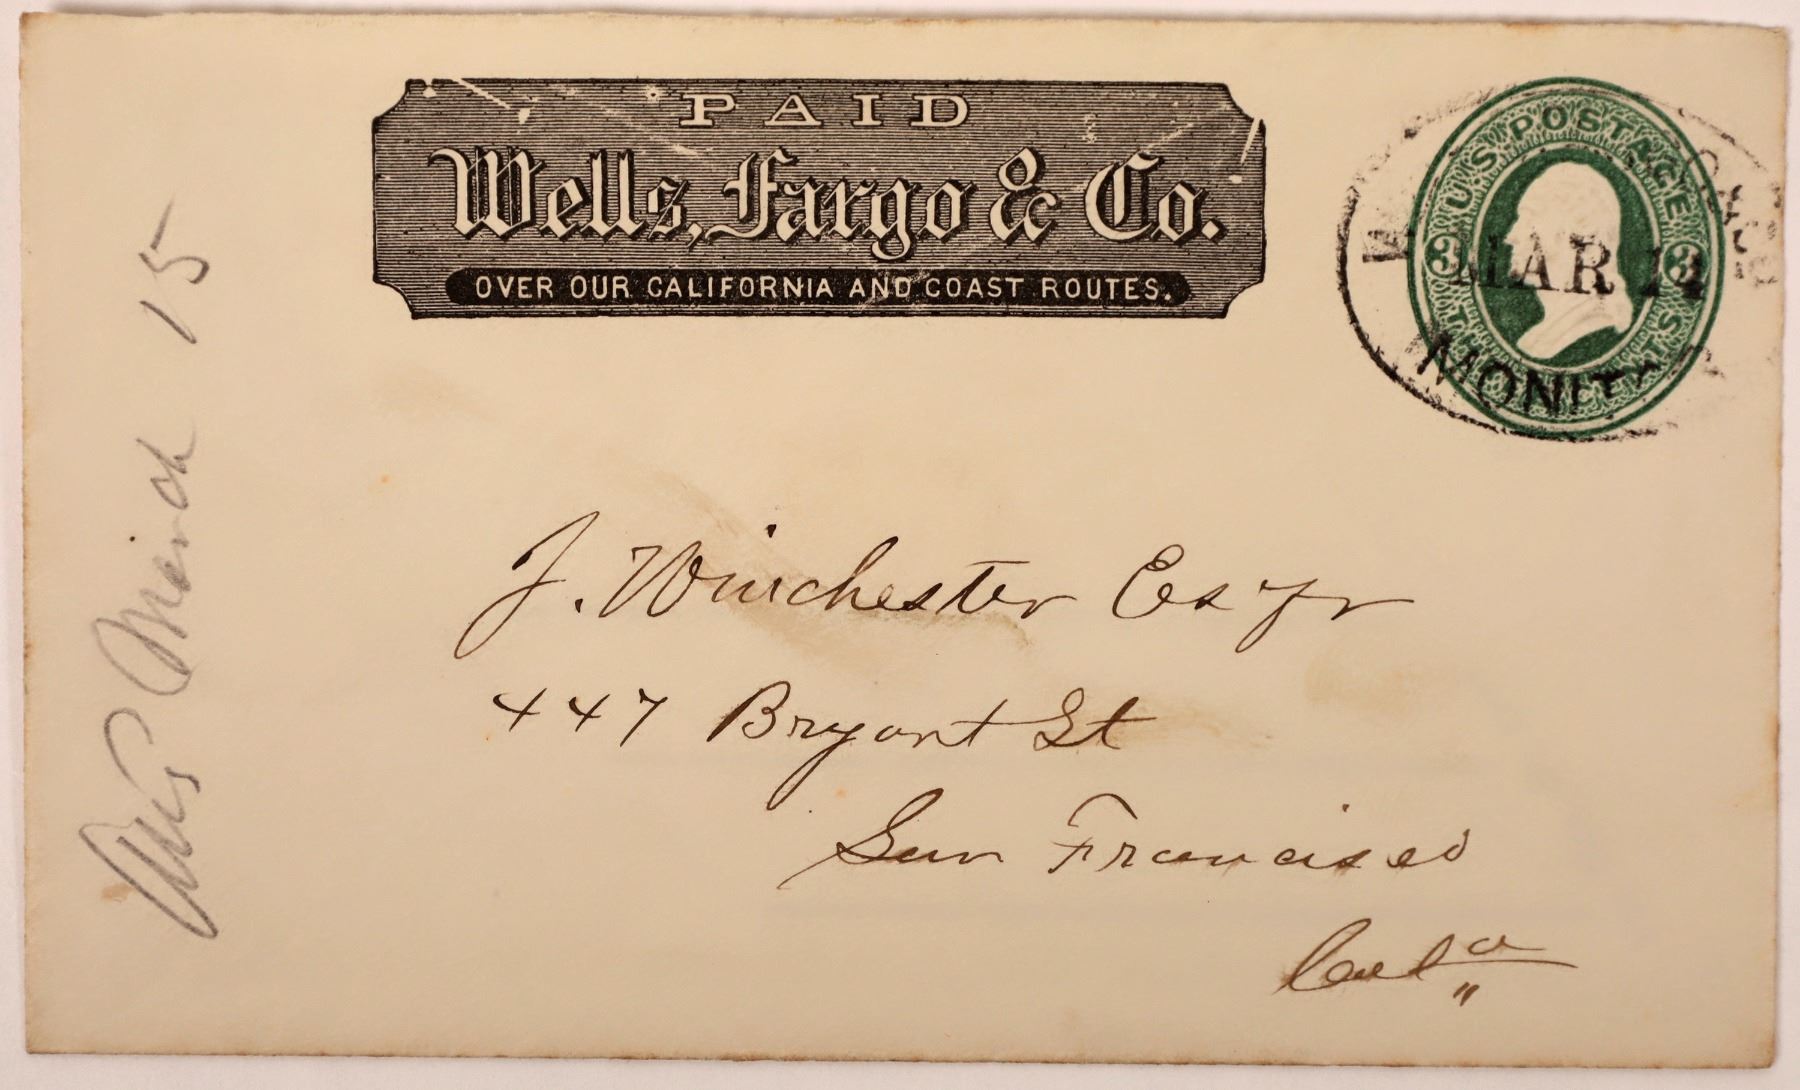 PAID
Wells, Fargo & Co.
OVER OUR CALIFORNIA AND COAST ROUTES.
U.S. POSTAGE
3 3
THREE CENTS
MAR 14
MONITOR
J. Winchester Esqr
447 Bryant St
San Francisco
Cala
March 15